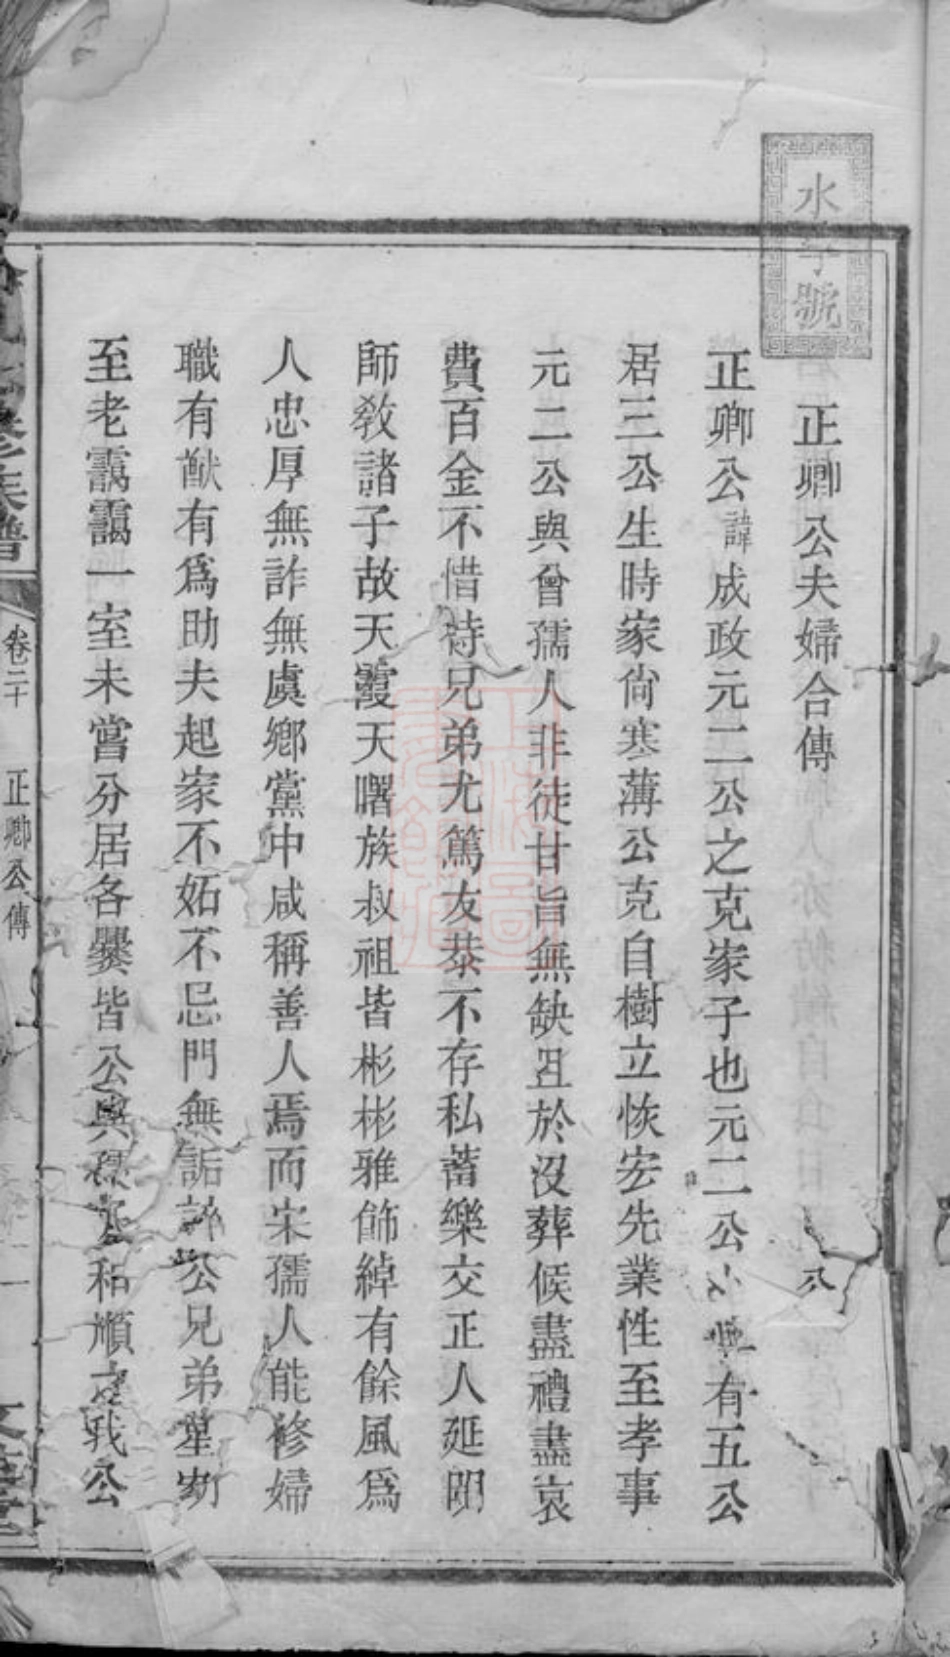 水字號
正卿公夫婦合傳
正卿公諱成政元二公之克家子也元二公有五公
居三公生時家尙寒薄公克自樹立恢宏先業性至孝事
元二公與曾孺人非徒甘旨無缺且於沒葬候盡禮盡哀
費百金不惜待兄弟尤篤友恭不存私蓄樂交正人延明
師敎諸子故天霞天曙族叔祖皆彬彬雅飭綽有餘風爲
人忠厚無詐無虞鄕黨中咸稱善人焉而宋孺人能修婦
職有猷有爲助夫起家不妬不忌門無詬誶公兄弟輩幼
至老靄靄一室未嘗分居各爨皆公與和順之我公
族譜
卷二十
正卿公傳
一